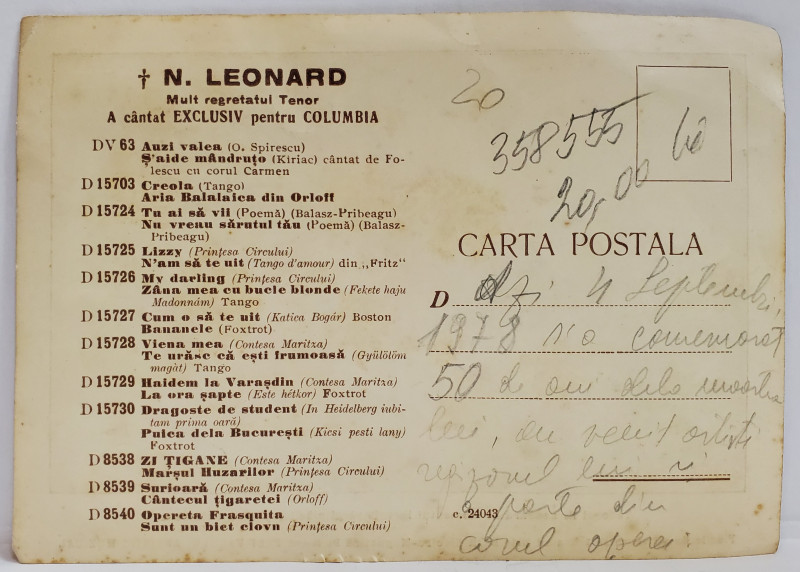 † N. LEONARD
Mult regretatul Tenor
A cântat EXCLUSIV pentru COLUMBIA
DV 63 Auzi valea (O. Spirescu)
Ș'aide mândruțo (Kiriac) cântat de Fo-
lescu cu corul Carmen
D 15703 Creola (Tango)
Aria Balalaica din Orloff
D 15724 Tu ai să vii (Poemă) (Balasz-Pribeagu)
Nu vreau sărutul tău (Poemă) (Balasz-
Pribeagu)
D 15725 Lizzy (Prințesa Circului)
N'am să te uit (Tango d'amour) din „Fritz"
D 15726 My darling (Prințesa Circului)
Zâna mea cu bucle blonde (Fekete haju
Madonnám) Tango
D 15727 Cum o să te uit (Katica Bogár) Boston
Bananele (Foxtrot)
D 15728 Viena mea (Contesa Maritza)
Te urăsc că ești frumoasă (Gyülölöm
magàt) Tango
D 15729 Haidem la Varașdin (Contesa Maritza)
La ora șapte (Este hétkor) Foxtrot
D 15730 Dragoste de student (In Heidelberg iubi-
tam prima oară)
Puica dela București (Kicsi pesti lany)
Foxtrot
D 8538 ZI ȚIGANE (Contesa Maritza)
Marșul Huzarilor (Prințesa Circului)
D 8539 Surioară (Contesa Maritza)
Cântecul țigaretei (Orloff)
D 8540 Opereta Frasquita
Sunt un biet clovn (Prințesa Circului)
c. 24043
20
358555
20,00
CARTA POSTALA
D Azi 4 Septembrie,
1978 s'a comemorat
50 de ani dela moartea
lui, au venit artiști
și
parte din
corul operei.